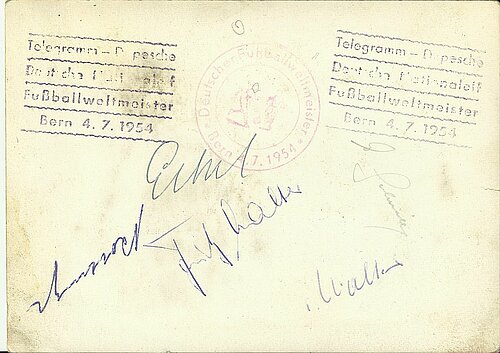 Telegramm - Depesche
Deutsche Nationalelf
Fußballweltmeister
Bern 4. 7. 1954
Deutscher Fußballweltmeister
Bern 4. 7. 1954
Telegramm - Depesche
Deutsche Nationalelf
Fußballweltmeister
Bern 4. 7. 1954
Eckel
Fritz Walter
Walter